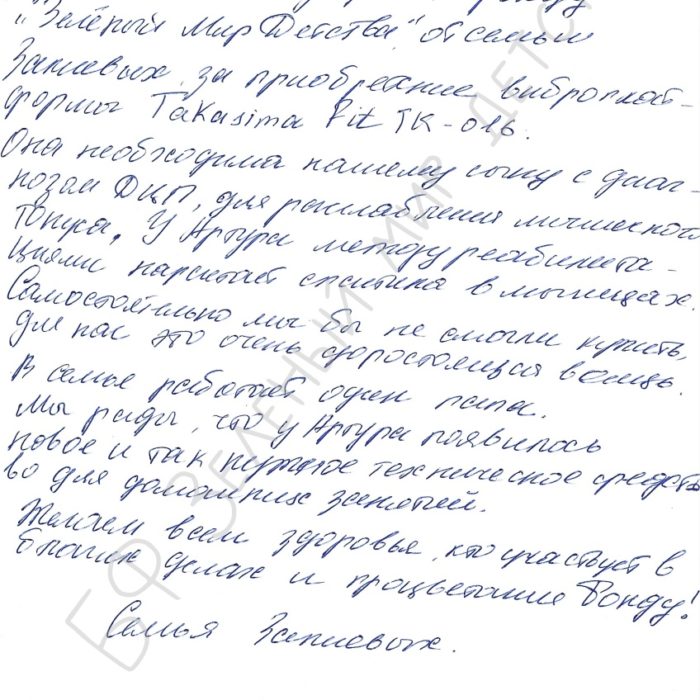 "Зелёный Мир Детства" от семьи
за приобретение виброплат-
формы Takasima Fit TK-016.
Она необходима нашему сыну с диаг-
нозом ДЦП, для расслабления мышечного
тонуса. У Артура между реабилита-
циями нарастает спастика в мышцах.
Самостоятельно мы бы не смогли купить,
для нас это очень доростоящая вещь.
В семье работает один папа.
Мы рады, что у Артура появилось
новое и так нужное техническое средст-
во для домашних занятий.
Желаем всем здоровья, кто участвует в
благих делах и процветание Фонду!
Семья
БФ ЗЕЛЕНЫЙ МИР ДЕТС